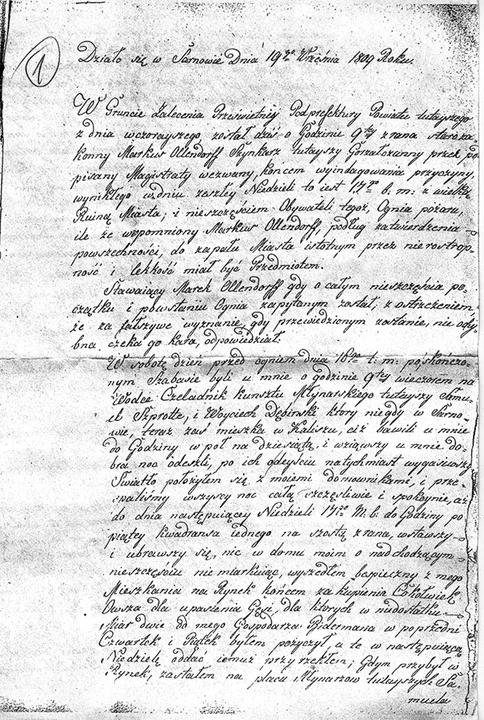 1
Działo się w Sarnowie Dnia 19go Września 1809 Roku.
W Gruncie Zalecenia Prześwietney Podprefektury Powiatu tutayszego
z dnia wczorayszego, został dziś o Godzinie 9tey zrana staroza
konny Markus Ollendorff Szynkarz tutayszy Gorzałczanny przed pod
pisany Magistraty wezwany, końcem wyindagowania przyczyny,
wynikłego w dniu zeszłey Niedzieli to iest 17go b. m: z wielką
Ruiną Miasta, i nieszczęściem Obywateli tegoż, Ognia pożaru,
ile że wzpomniony Markus Ollendorff, podług zatwierdzenia
powszechności, do zapału Miasta istotnym przez nierostrop-
ność i lekkość miał być Przedmiotem.
Stawaiący Marek Ollendorff gdy o całym nieszczęścia po
czątku i powstaniu Ognia zapytanym został, z ostrzeżeniem
że za fałszywe wyznanie, gdy przewiedzionym zostanie, nie ochy
bna czeka go kara, odpowiedział.
W sobotę dzień przed ogniem dnia 16go t. m: po skończo-
nym Szabasie byli u mnie o godzinie 9tey wieczorem na
Wodce Czeladnik kunsztu Młynarskiego tutayszy Samu-
el Szprotte, i Woyciech Dębinski który niegdy w Sarno-
wie, teraz zaś mieszka w Kaliszu, ciż bawili u mnie
do Godziny w pół na dziesiątą, i wziąwszy u mnie do-
bra noc odeszli, po ich odeyściu natychmiast wygasiwszy
Swiatło położyłem się z moiemi domownikami, i prze-
spaliśmy wszyscy noc całą szczęśliwie i spokoynie, aż
do dnia następuiącey Niedzieli 17go M. b. do Godziny po
piątey kwadransa iednego na szostą zrana, wstawszy
i ubrawszy się, nic w domu moim o nadchodzącym
nieszczęściu nie miarkuiąc, wyszedłem bespieczny z mego
Mieszkania na Rynek końcem zakupienia Cokolwiek
Owsa dla upasienia Gęsi, dla których w niedostatku
Miar dwie od mego Gospodarza Bidermana w poprzedni
Czwartek i Piątek byłem pożyczył, a te w następuiącą
Niedzielę oddać iemuż przyrzekłem, Gdym przybył w
Rynek, zastałem na placu Młynarzow tutayszych Sa-
muela